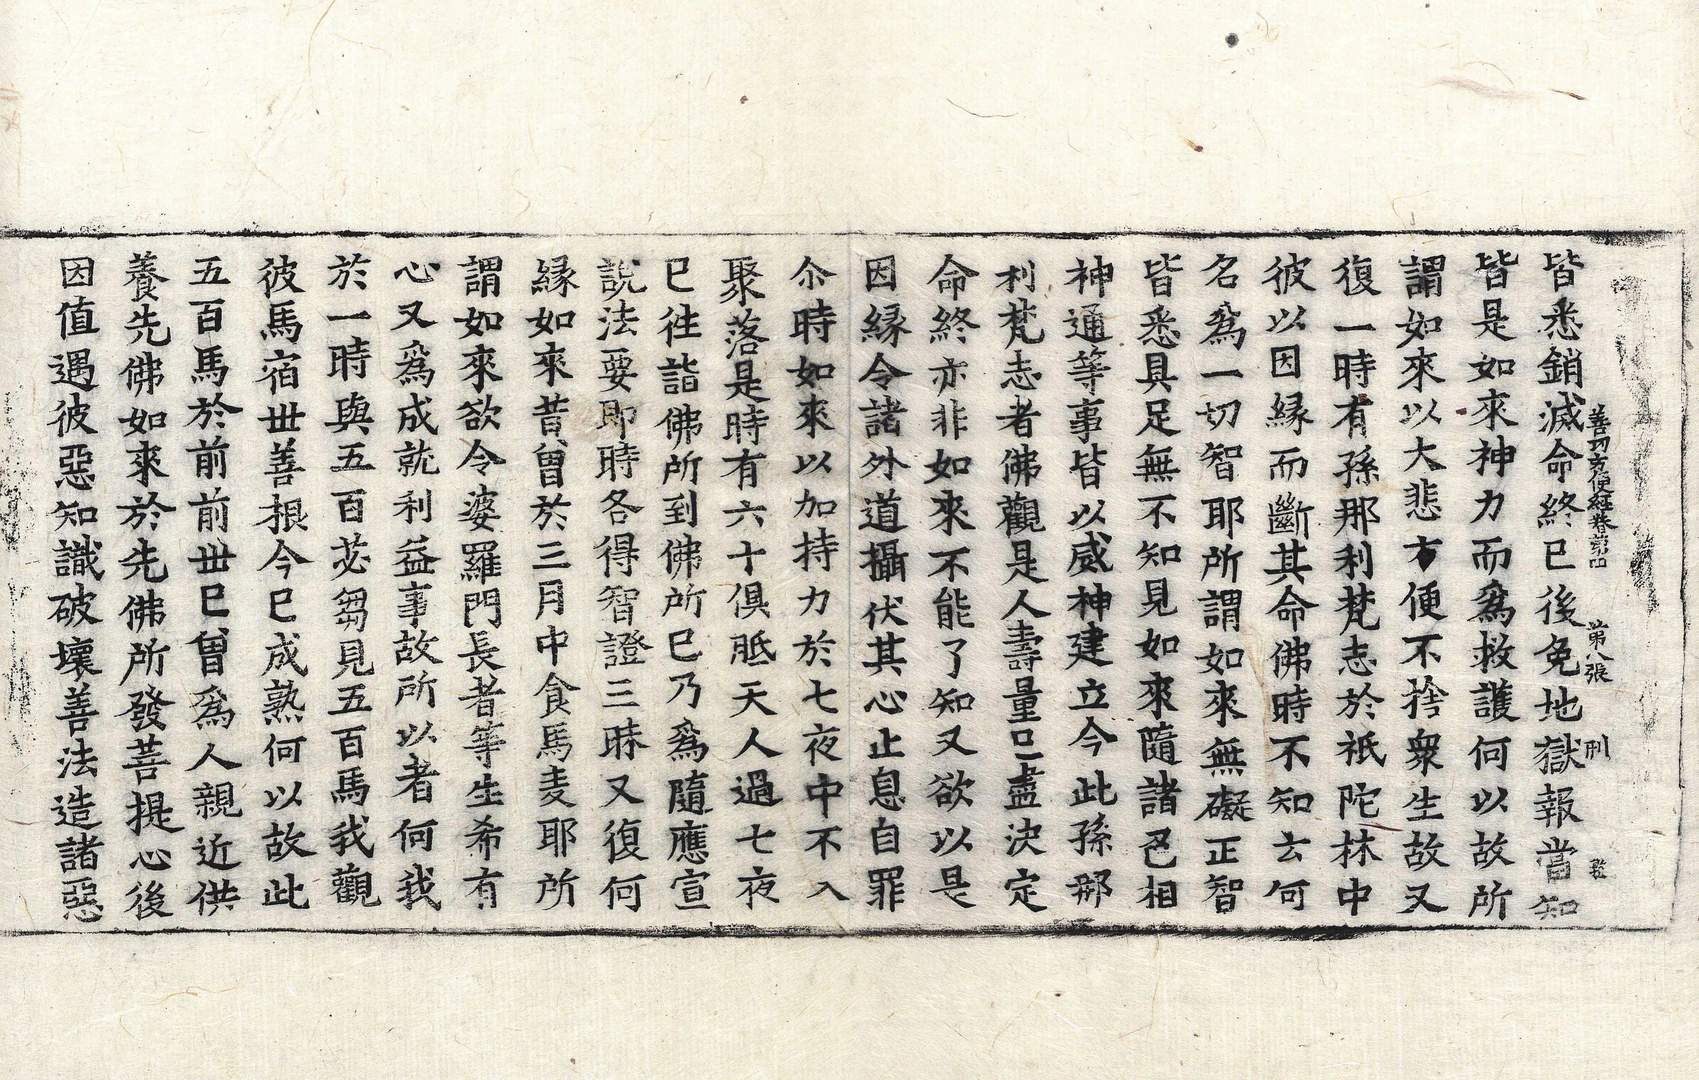 善巧方便經卷第四　第八張　刑
皆悉銷滅命終已後免地獄報當知
皆是如來神力而爲救護何以故所
謂如來以大悲方便不捨衆生故又
復一時有孫那利梵志於祇陀林中
彼以因緣而斷其命佛時不知云何
名爲一切智耶所謂如來無礙正智
皆悉具足無不知見如來隨諸色相
神通等事皆以威神建立今此孫那
利梵志者佛觀是人壽量已盡決定
命終亦非如來不能了知又欲以是
因緣令諸外道攝伏其心止息自罪
尒時如來以加持力於七夜中不入
聚落是時有六十俱胝天人過七夜
已往詣佛所到佛所已乃爲隨應宣
說法要即時各得智證三昧又復何
緣如來昔曾於三月中食馬麦耶所
謂如來欲令婆羅門長者等生希有
心又爲成就利益事故所以者何我
於一時與五百苾芻見五百馬我觀
彼馬宿丗善根今已成熟何以故此
五百馬於前前丗已曾爲人親近供
養先佛如來於先佛所發菩提心後
因值遇彼惡知識破壞善法造諸惡